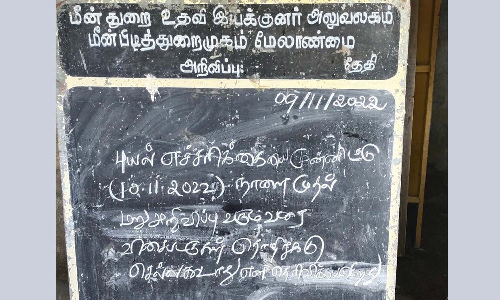 மீன் துறை உதவி இயக்குனர் அலுவலகம்
மீன்பிடித்துறைமுகம் மேலாண்மை
அறிவிப்பு: தேதி
09/11/2022
புயல் எச்சரிக்கையை முன்னிட்டு
(10.11.2022) நாளை முதல்
மறு அறிவிப்பு வரும்வரை
விசைபடகுகள்
செல்லக்கூடாது என தெரிவிக்கப்படுகிறது